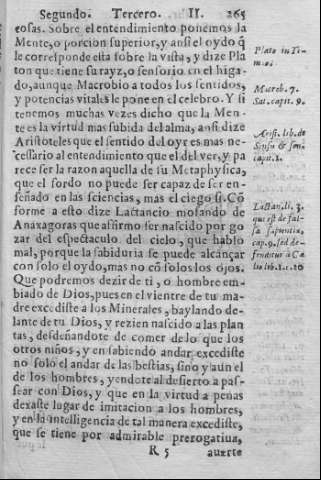 Segundo. Tercero. II. 265
cosas. Sobre el entendimiento ponemos la
Mente, o porcion superior, y ansi el oydo q̃
le corresponde esta sobre la vista, y dize Pla
ton que tiene su rayz, o sensorio en el higa-
do, aunque Macrobio a todos los sentidos,
y potencias vitales le pone en el celebro. Y si
tenemos muchas vezes dicho que la Men-
te es la virtud mas subida del alma, ansi dize
Aristoteles que el sentido del oyr es mas ne-
cessario al entendimiento que el del ver, y pa
rece ser la razon aquella de su Metaphysica,
que el sordo no puede ser capaz de ser en-
señado en las sciencias, mas el ciego si. Cõ
forme a esto dize Lactancio mofando de
Anaxagoras que affirmo ser nascido por go
zar del espectaculo del cielo, que hablo
mal, porque la sabiduria se puede alcançar
con solo el oydo, mas no cõ solos los ojos.
Que podremos dezir de ti, o hombre em-
biado de Dios, pues en el vientre de tu ma-
dre excediste a los Minerales, baylando de-
lante de tu Dios, y rezien nascido a las plan
tas, desdeñandote de comer de lo que los
otros niños, y en sabiendo andar excediste
no solo el andar de las bestias, sino y aun el
de los hombres, yendote al desierto a pas-
sear con Dios, y que en la virtud a penas
dexaste lugar de imitacion a los hombres,
y en la intelligencia de tal manera excediste,
que se tiene por admirable prerogatiua,
R 5 auerte
Plato in Ti-
mæo.
Macrob. 7.
Sat. capit. 9.
Arist. lib. de
Sensu & sens.
capit. 1.
Lactan. li. 3.
que est de fal-
sa sapientia,
cap. 9. sed de-
lib. 1. c. 10